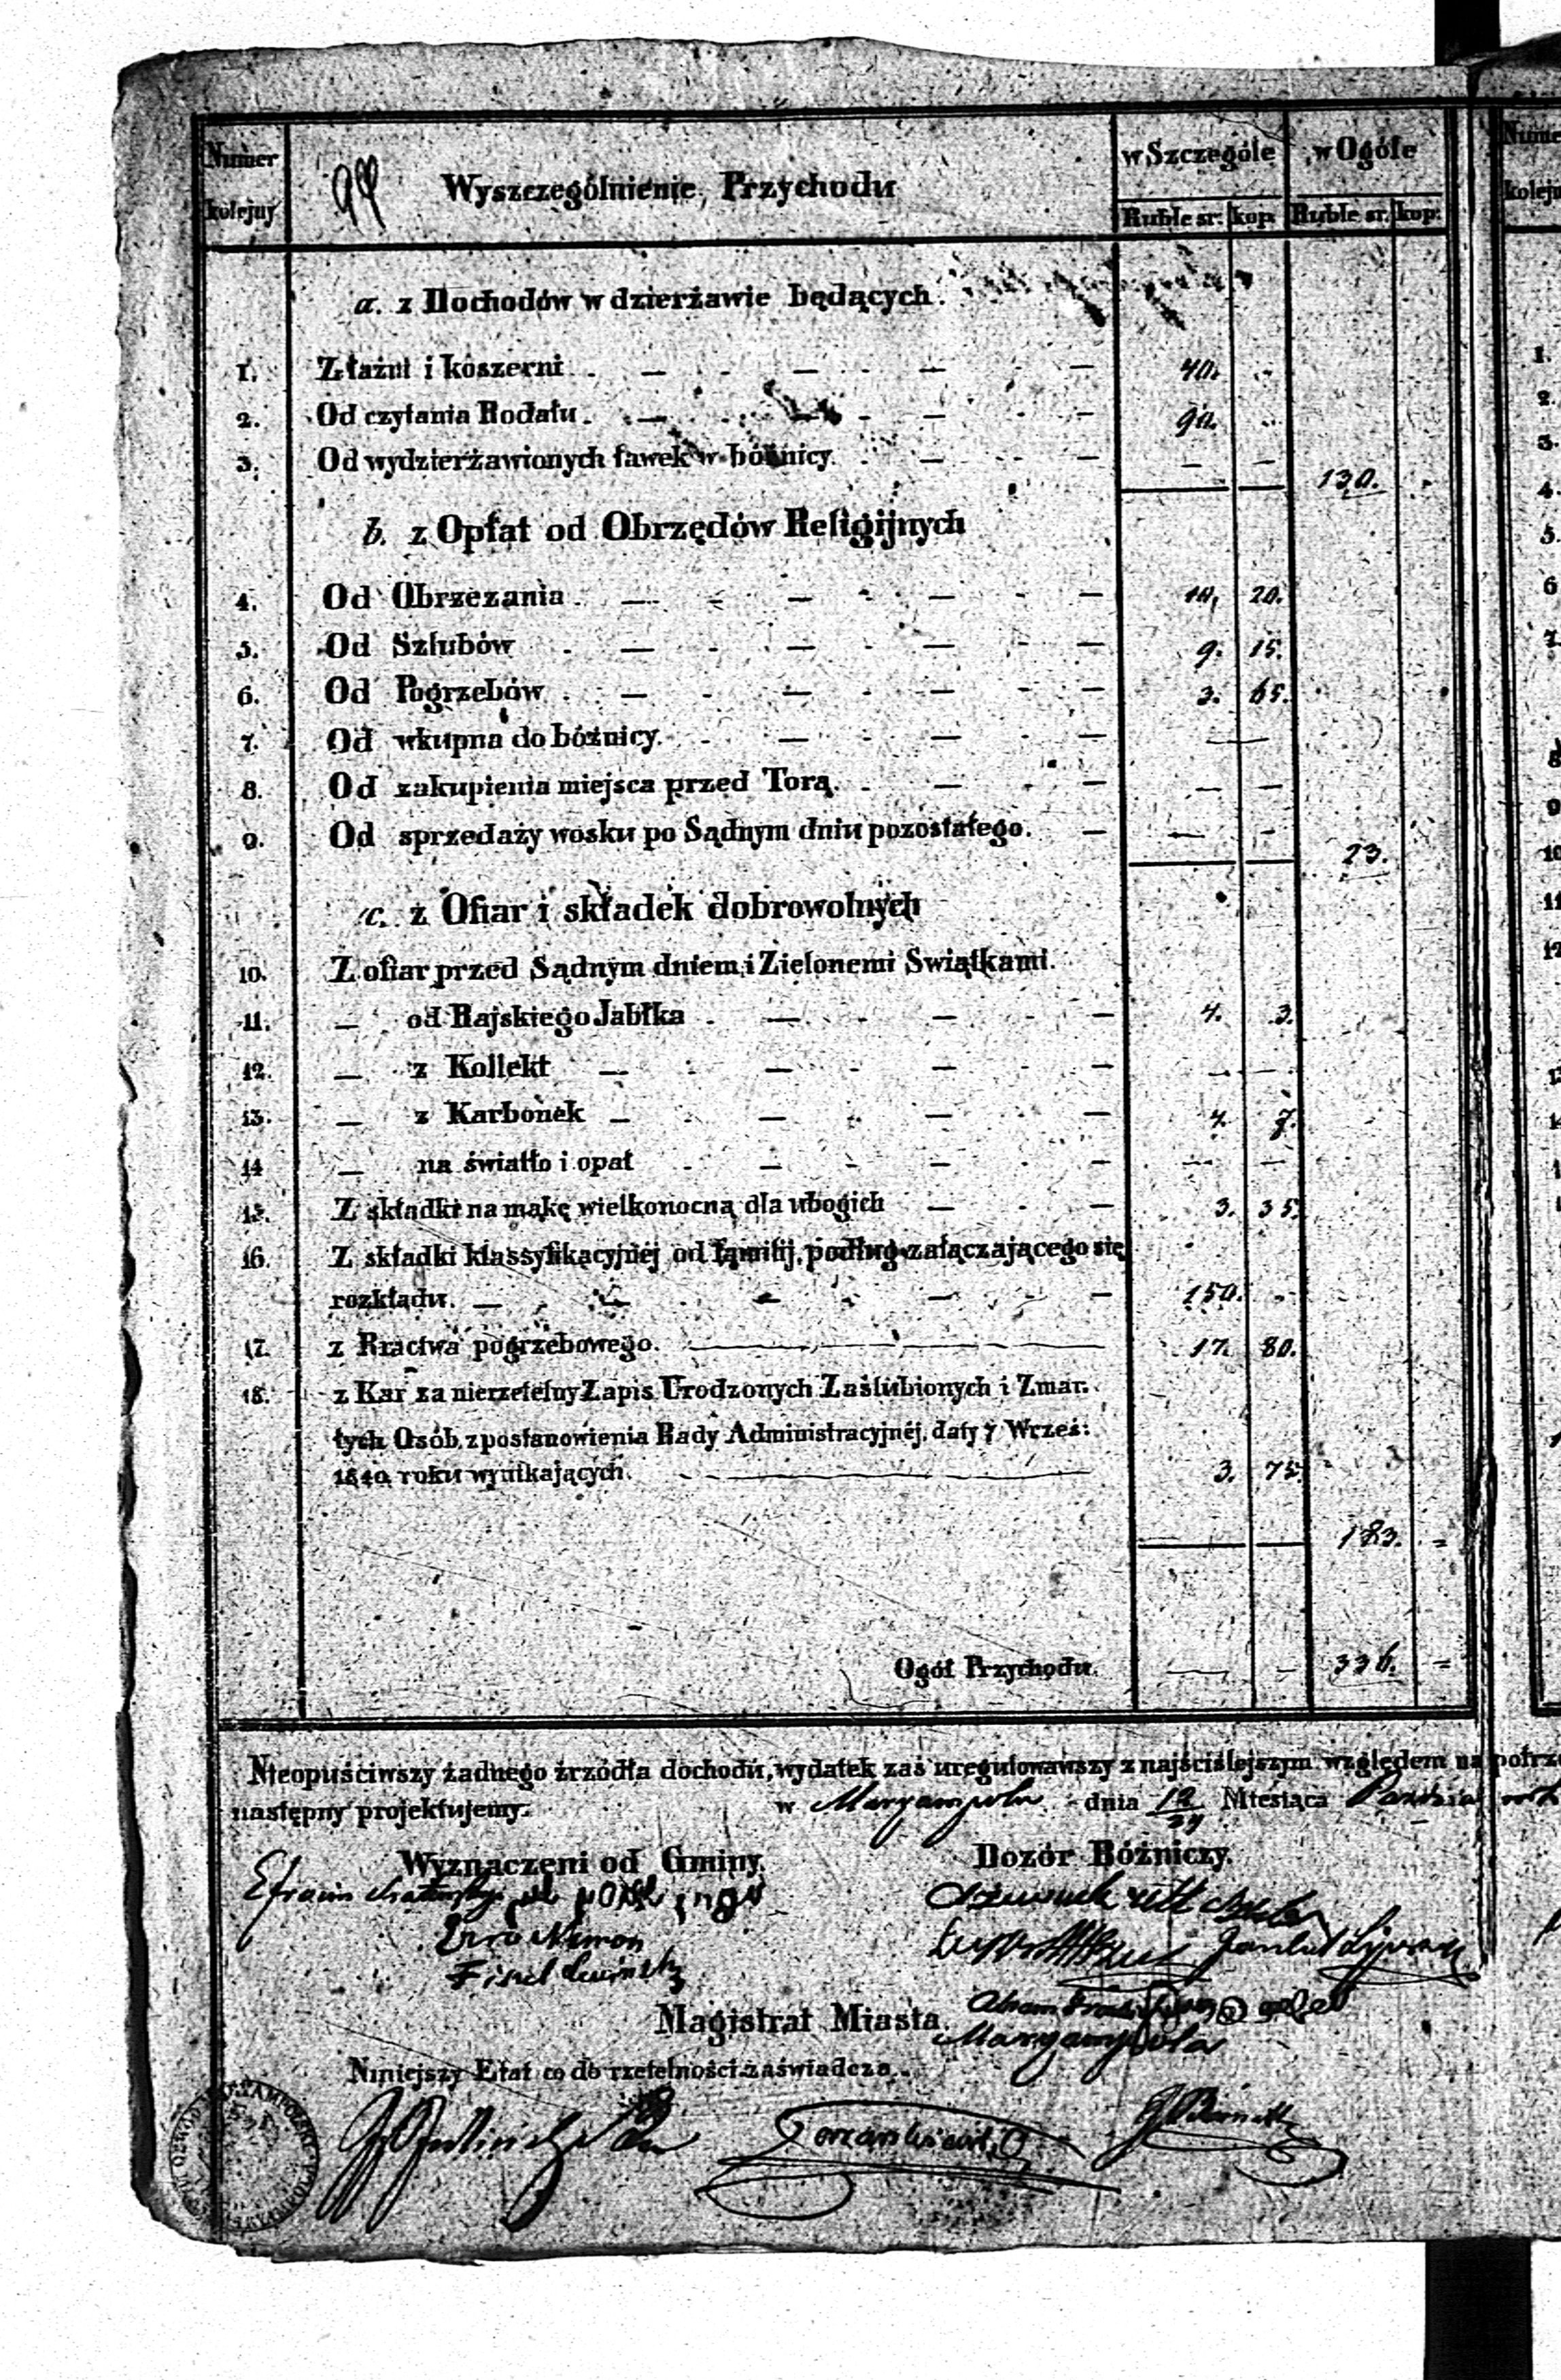 Numer kolejny Wyszczególnienie Przychodu w Szczególe w Ogóle
Ruble sr. kop. Ruble sr. kop:
a. z Dochodów w dzierżawie będących.
1. Z łaźni i koszerni 40.
2. Od czytania Rodału. 90.
3. Od wydzierżawionych ławek w bóżnicy. — — 130.
b. z Opłat od Obrzędów Religijnych
4. Od Obrzezania 10. 20.
5. Od Szlubów 9. 15.
6. Od Pogrzebów 3. 65.
7. Od wkupna do bóżnicy. —
8. Od zakupienia miejsca przed Torą. — —
9. Od sprzedaży wosku po Sądnym dniu pozostałego. — — 23.
c. z Ofiar i składek dobrowolnych
10. Z ofiar przed Sądnym dniem i Zielonemi Swiątkami.
11. — od Rajskiego Jabłka 4. 3.
12. — z Kollekt — —
13. — z Karbonek 4. 7.
14 — na światło i opał — —
15. Z składki na mąkę wielkonocną dla ubogich 3. 35.
16. Z składki klassyfikacyjnéj od familij, podług załączającego się
rozkładu. 150.
17. z Bractwa pogrzebowego. 17. 80.
18. z Kar za nierzetelny Zapis Urodzonych Zaślubionych i Zmar-
łych Osób, z postanowienia Rady Administracyjnéj, daty 7 Wrześ:
1840 roku wynikających. 3. 75.
183.
Ogół Przychodu. — — 336.
Nieopuściwszy żadnego źrzódła dochodu, wydatek zaś uregulowawszy z najściślejszym względem na potrze
następny projektujemy. w Maryampolu dnia 12/24 Miesiąca
Wyznaczeni od Gminy. Dozór Bóżniczy.
Efroim
Magistrat Miasta Maryampola
Niniejszy Etat co do rzetelności zaświadcza.